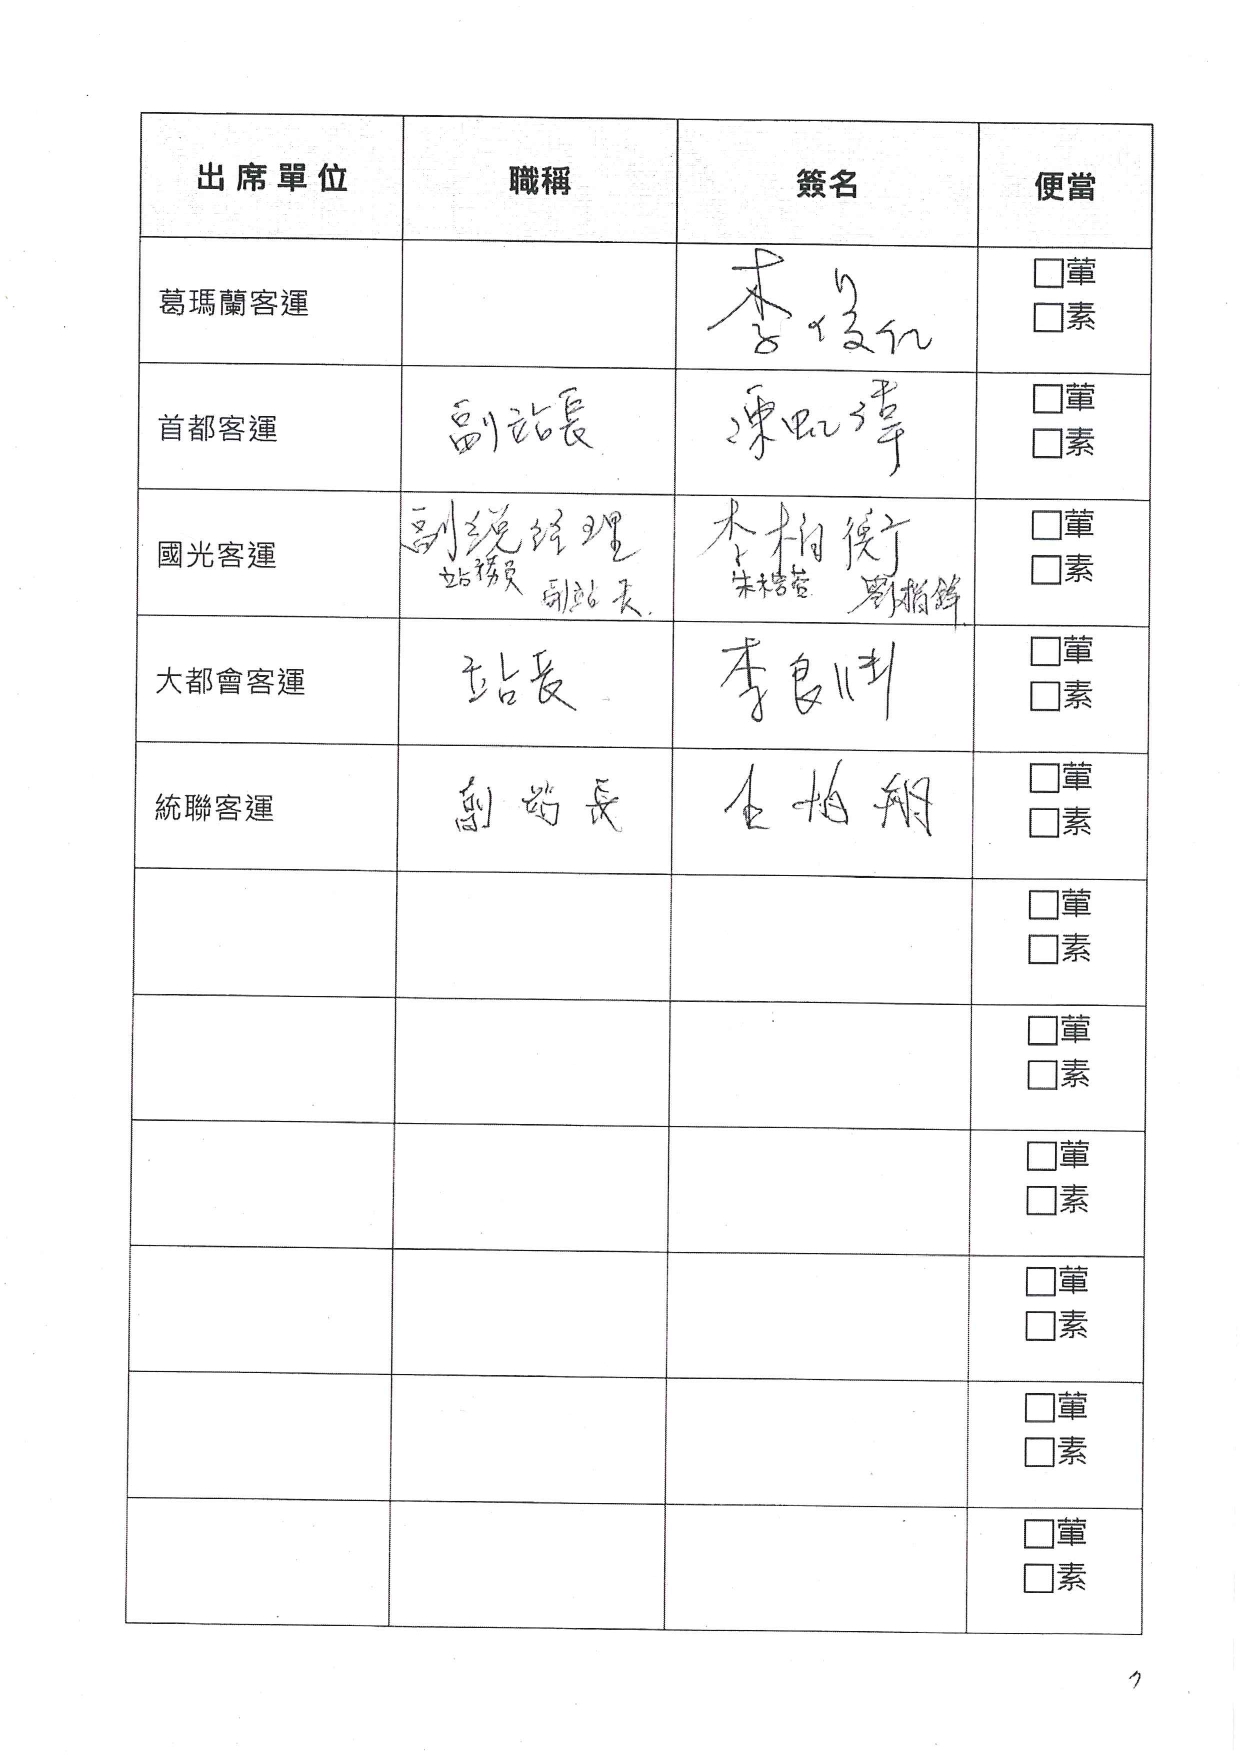 出席單位 職稱 簽名 便當
葛瑪蘭客運 李俊仁 □葷
□素
首都客運 副站長 陳虹瑋 □葷
□素
國光客運 副總經理 李柏衡 □葷
站務員 副站長 朱 劉 □素
大都會客運 站長 李良 □葷
□素
統聯客運 副站長 □葷
□素
□葷
□素
□葷
□素
□葷
□素
□葷
□素
□葷
□素
□葷
□素